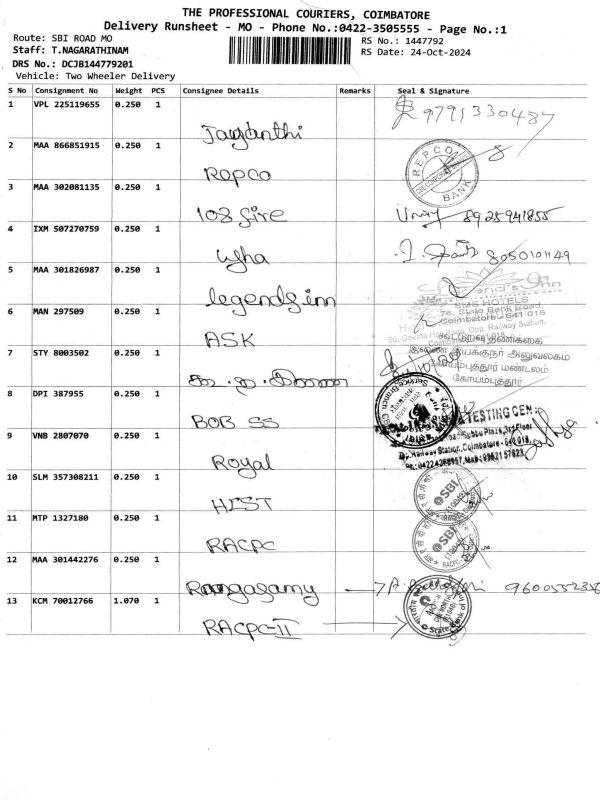 THE PROFESSIONAL COURIERS, COIMBATORE
Delivery Runsheet - MO - Phone No.:0422-3505555 - Page No.:1
Route: SBI ROAD MO
RS No.: 1447792
Staff: T.NAGARATHINAM
RS Date: 24-Oct-2024
DRS No.: DCJB144779201
Vehicle: Two Wheeler Delivery
S No Consignment No Weight PCS Consignee Details Remarks Seal & Signature
1 VPL 225119655 0.250 1 Jayanthi 9791330487
2 MAA 866851915 0.250 1 Repco REPCO BANK
3 MAA 302081135 0.250 1 108 fire 8925941855
4 IXM 507270759 0.250 1 Usha 8050101149
5 MAA 301826987 0.250 1 legends inn
SMS HOTELS
76, State Bank Road,
Coimbatore - 641 018
6 MAN 297509 0.250 1 ASK
Opp. Railway Station,
7 STY 8003502 0.250 1
இணை இயக்குநர் அலுவலகம்
கோயம்புத்தூர் மண்டலம்
கோயம்புத்தூர்
8 DPI 387955 0.250 1 BOB SS
Service Branch
& TESTING CEN
Subbu Plaza, 3rd Floor
Railway Station, Coimbatore - 641 018
9 VNB 2807070 0.250 1 Royal
10 SLM 357308211 0.250 1 HLST SBI
11 MTP 1327180 0.250 1 RACPC SBI
12 MAA 301442276 0.250 1 Rangasamy
13 KCM 70012766 1.070 1 RACPC-II State Bank of